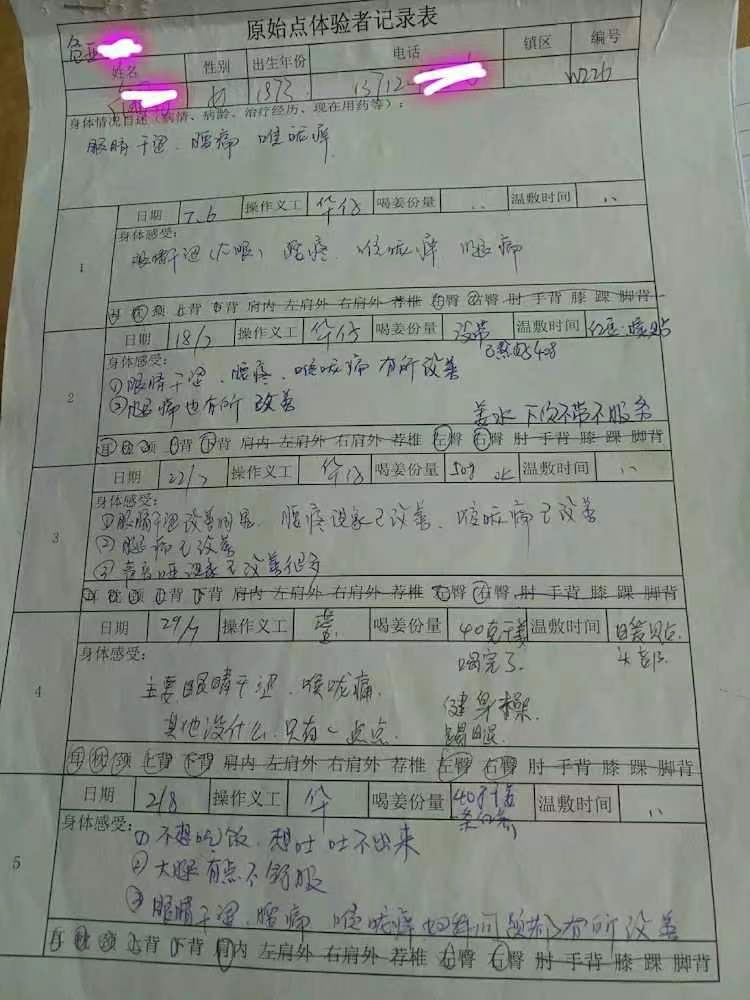 原始点体验者记录表
姓名 性别 出生年份 电话 镇区 编号
女 1973 13712 W226
身体情况自述(病情、病龄、治疗经历、现在用药等):
眼睛干涩、腰痛 喉咙痒
1 日期 7.6 操作义工 华仔 喝姜份量 温敷时间
身体感受:
眼睛干涩(左眼) 腰疼、喉咙痒 腿痛
耳 枕 颈 上背 下背 肩内 左肩外 右肩外 荐椎 左臀 右臀 肘 手背 膝 踝 脚背
2 日期 18/7 操作义工 华仔 喝姜份量 没带 温敷时间
身体感受:
①眼睛干涩、腰疼、喉咙痛 有所改善
②腿痛也有所 改善
姜水 下次不带不服务
耳 枕 颈 上背 下背 肩内 左肩外 右肩外 荐椎 左臀 右臀 肘 手背 膝 踝 脚背
3 日期 22/7 操作义工 华仔 喝姜份量 50g 温敷时间
身体感受:
①眼睛干涩改善明显、腰疼 已改善、喉咙痛已改善
②腿痛已改善
③声音哑 已改善很多
耳 枕 颈 上背 下背 肩内 左肩外 右肩外 荐椎 左臀 右臀 肘 手背 膝 踝 脚背
4 日期 29/7 操作义工 喝姜份量 40克干姜 温敷时间
喝完了
身体感受:
主要眼睛干涩、喉咙痛、
健身操
其他没什么、只有一点点
耳 枕 颈 上背 下背 肩内 左肩外 右肩外 荐椎 左臀 右臀 肘 手背 膝 踝 脚背
5 日期 2/8 操作义工 华 喝姜份量 40g干姜 温敷时间
身体感受:
① 不想吃饭、想吐 吐不出来
② 大腿有点不舒服
③ 眼睛干涩、腰痛 喉咙痒 有所改善
耳 枕 颈 上背 下背 肩内 左肩外 右肩外 荐椎 左臀 右臀 肘 手背 膝 踝 脚背